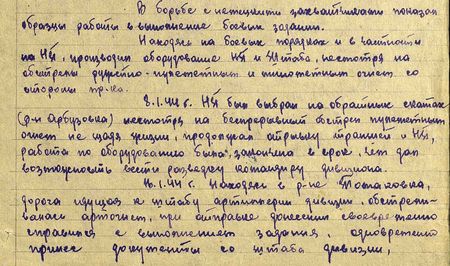 В борьбе с немецкими захватчиками показал
образцы работы в выполнение боевых задании.
Находясь на боевых порядках и в частности
на НП, производил оборудование НП и Штаба, несмотря на
обстрелы ружейно-пулеметным и минометным огнем со
стороны пр-ка.
8.1.44 г. НП был выбран на обратных скатах
(р-н Арбузовка) несмотря на беспрерывный обстрел пулеметным
огнем не щадя жизни, продолжал отрывку траншей и НП,
работа по оборудованию была закончена в срок, чем дал
возможность вести разведку командиру дивизиона.
10.1.44 г. Находясь в р-не
дорога идущая к штабу артиллерии дивизии, обстрели-
валась артогнем, при отправке донесении своевременно
справился с выполнением задания, одновременно
принес документы со штаба дивизии,